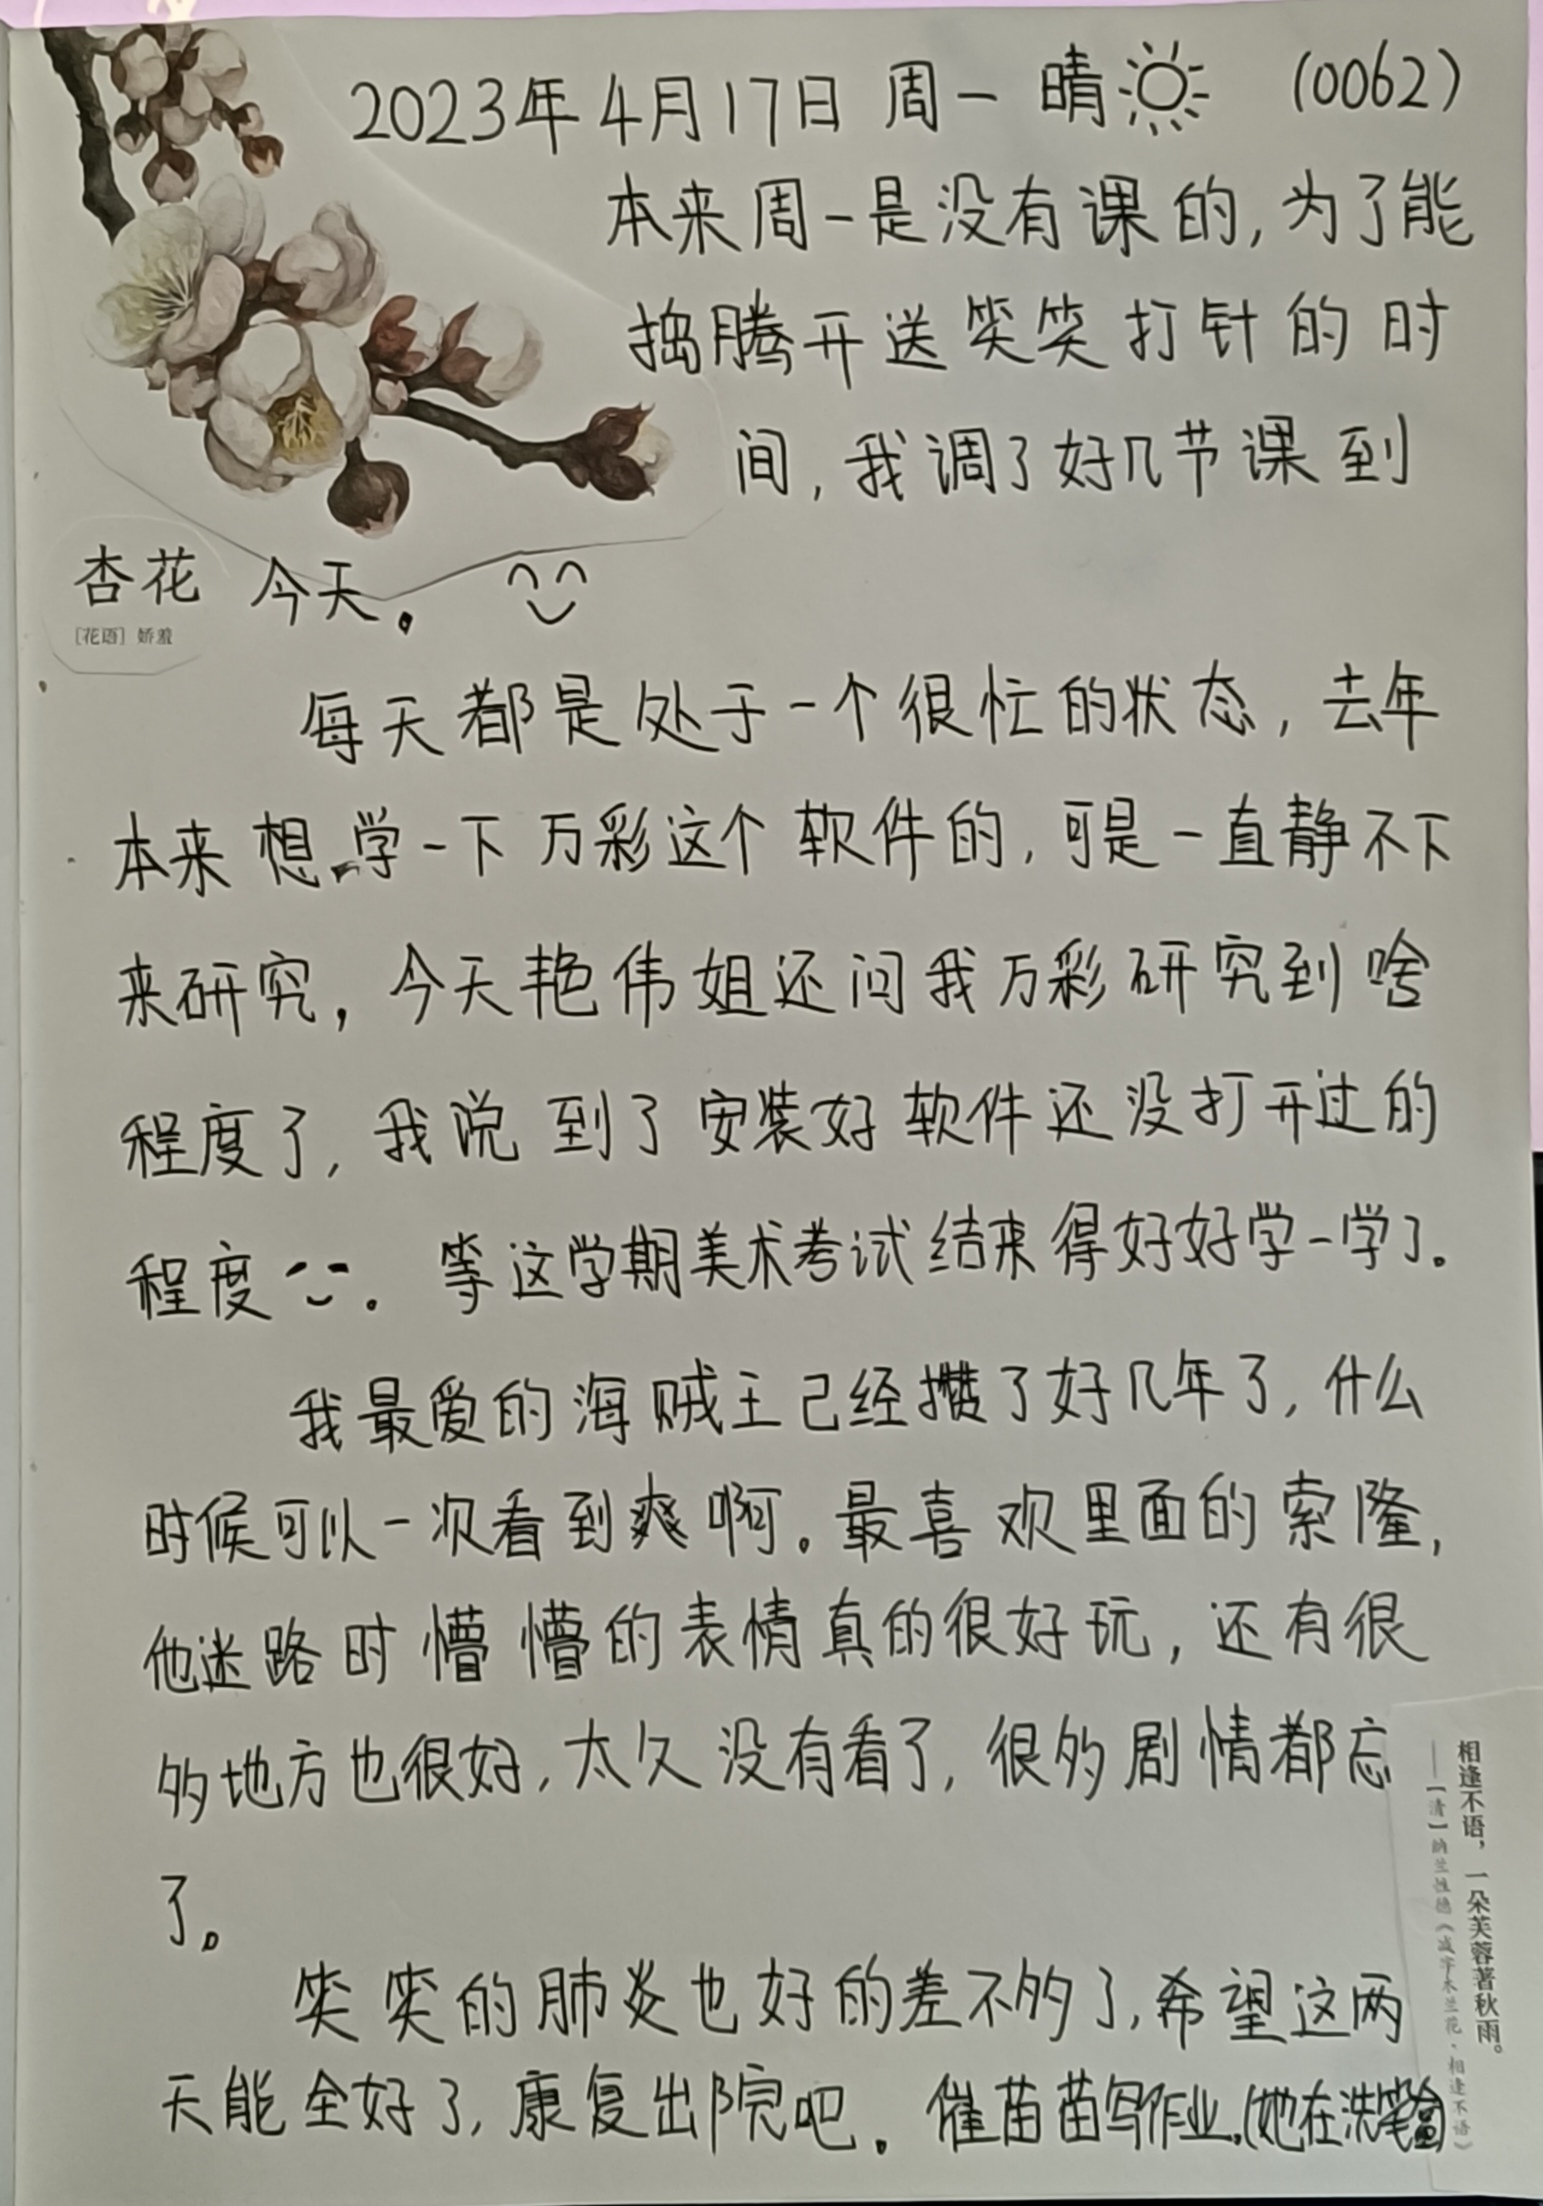 2023年4月17日 周一 晴 (0062)
本来周一是没有课的,为了能
捣腾开送笑笑打针的时
间,我调了好几节课到
杏花 今天。
[花语] 娇羞
每天都是处于一个很忙的状态,去年
本来想学一下万彩这个软件的,可是一直静不下
来研究,今天艳伟姐还问我万彩研究到啥
程度了,我说到了安装好软件还没打开过的
程度 。等这学期美术考试结束得好好学一学了。
我最爱的海贼王已经攒了好几年了,什么
时候可以一次看到爽啊。最喜欢里面的索隆,
他迷路时懵懵的表情真的很好玩,还有很
多地方也很好,太久没有看了,很多剧情都忘
了。
笑笑的肺炎也好的差不多了,希望这两
天能全好了,康复出院吧。催苗苗写作业,(她在洗笔
相逢不语,一朵芙蓉著秋雨。
——[清]纳兰性德《减字木兰花·相逢不语》